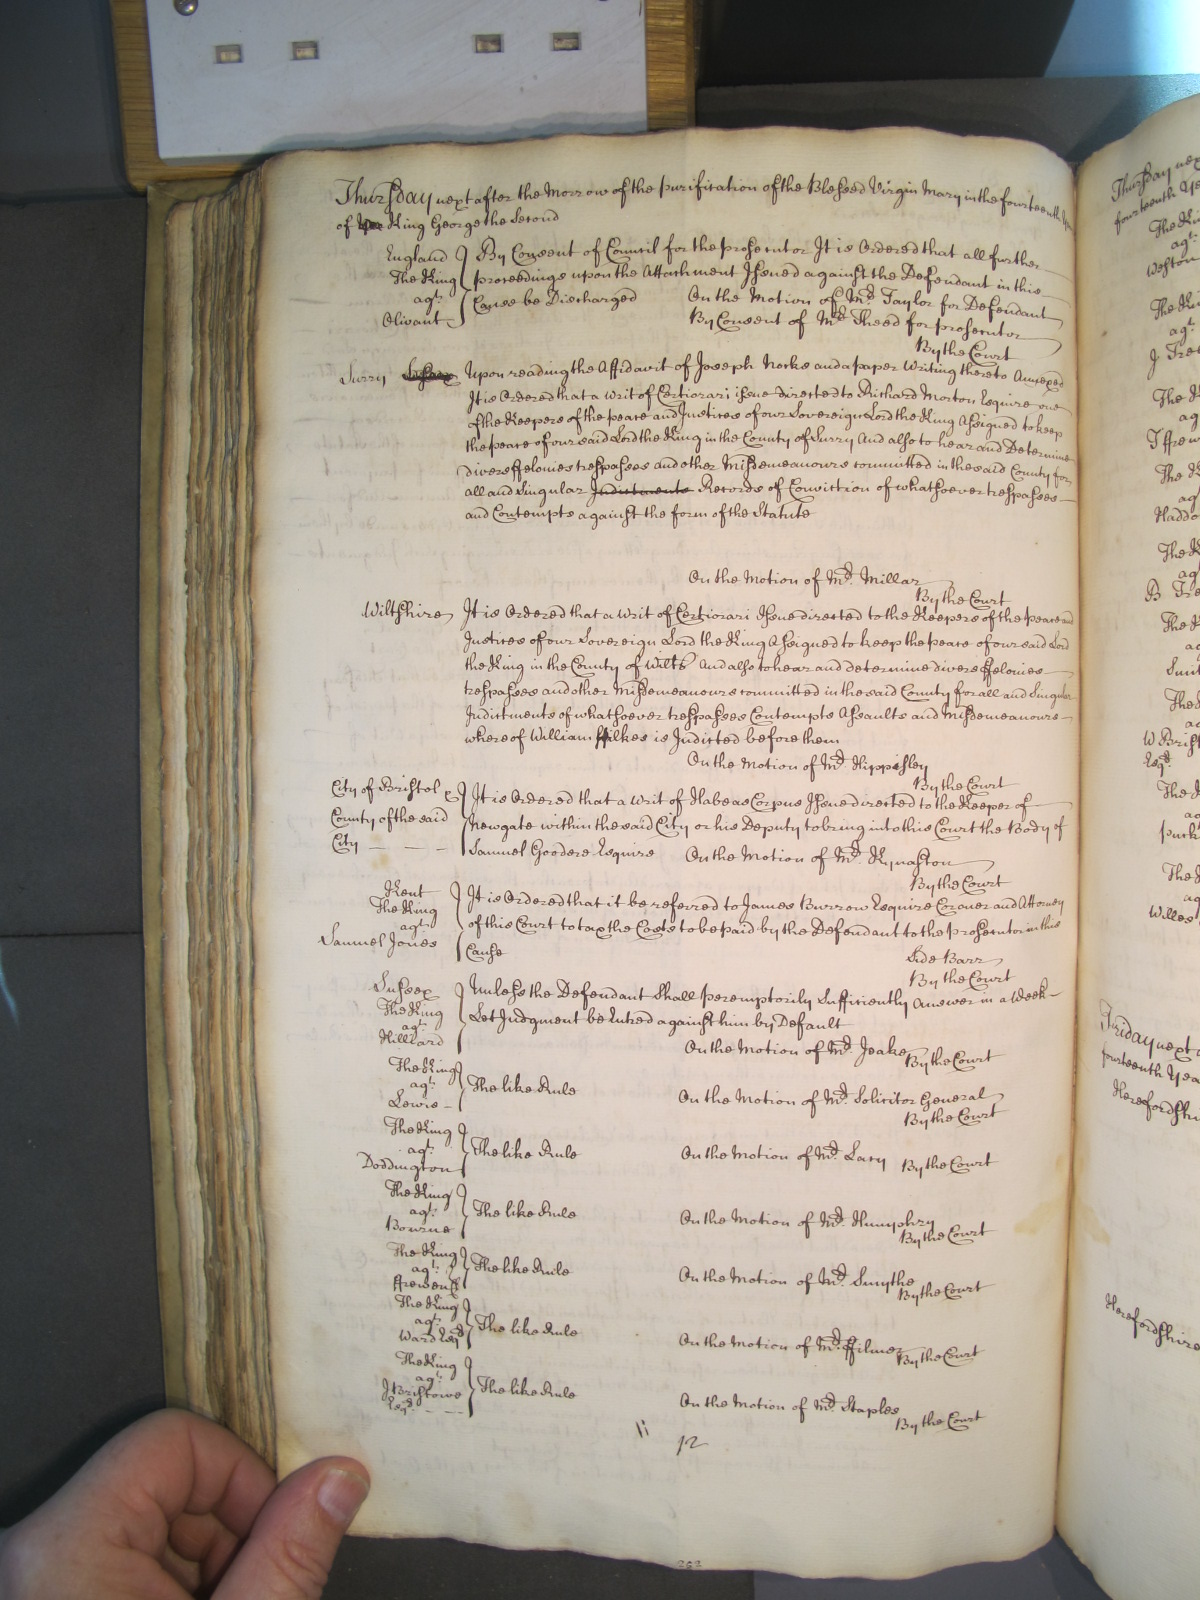 Thursday next after the Morrow of the purification of the Blessed Virgin Mary in the fourteenth
of King George the Second
England By Consent of Council for the prosecutor It is Ordered that all further
The King proceedings upon the Attachment Issued against the Defendant in this
agt. Cause be Discharged On the Motion of Mr. Taylor for Defendant
Olivant By Consent of Mr. Theed for prosecutor
By the Court
Surry Upon reading the Affidavit of Joseph Nocks and a paper Writing thereto Annexed
It is Ordered that a writ of Certiorari issue directed to Richard Morton Esquire one
of the Keepers of the peace and Justices of our Sovereign Lord the King Assigned to keep
the peace of our said Lord the King in the County of Surry And also to hear and Determine
divers ffelonies trespasses and other Misdemeanours committed in the said County for
all and Singular Indictments Records of Conviction of whatsoever trespasses
and Contempts against the form of the Statute
On the Motion of Mr. Millar
By the Court
Wiltshire It is Ordered that a writ of Certiorari Issue directed to the Keepers of the peace and
Justices of our Sovereign Lord the King Assigned to keep the peace of our said Lord
the King in the County of Wilts And also to hear and determine divers ffelonies
trespasses and other Misdemeanours committed in the said County for all and Singular
Indictments of whatsoever trespasses Contempts Assaults and Misdemeanours
whereof William Wilkes is Indicted before them
On the Motion of Mr. Hippisley
By the Court
City of Bristol & It is Ordered that a writ of Habeas Corpus Issue directed to the Keeper of
County of the said Newgate within the said City or his Deputy to bring into this Court the Body of
City Samuel Goodere Esquire On the Motion of Mr. Kynaston
By the Court
Kent It is Ordered that it be referred to James Burrow Esquire Coroner and Attorney
The King
agt. of this Court to tax the Costs to be paid by the Defendant to the prosecutor in this
Samuel Jones Cause
Side Barr
By the Court
Sussex Unless the Defendant Shall peremptorily Sufficiently Answer in a Week
The King Let Judgment be Entred against him by Default
agt.
Hilliard On the Motion of Mr. Jeake By the Court
The King
agt. The like Rule On the Motion of Mr. Solicitor General
Lewis By the Court
The King
agt. The like Rule On the Motion of Mr. Lacy By the Court
Doddington
The King
agt. The like Rule On the Motion of Mr. Humphry
Bourne By the Court
The King
agt. The like Rule On the Motion of Mr. Smythe
ffrewen By the Court
The King
agt. The like Rule On the Motion of Mr. ffilmer By the Court
Ward Esqr.
The King
agt. The like Rule On the Motion of Mr. Staples
J Bristowe By the Court
Esqr.
12
262